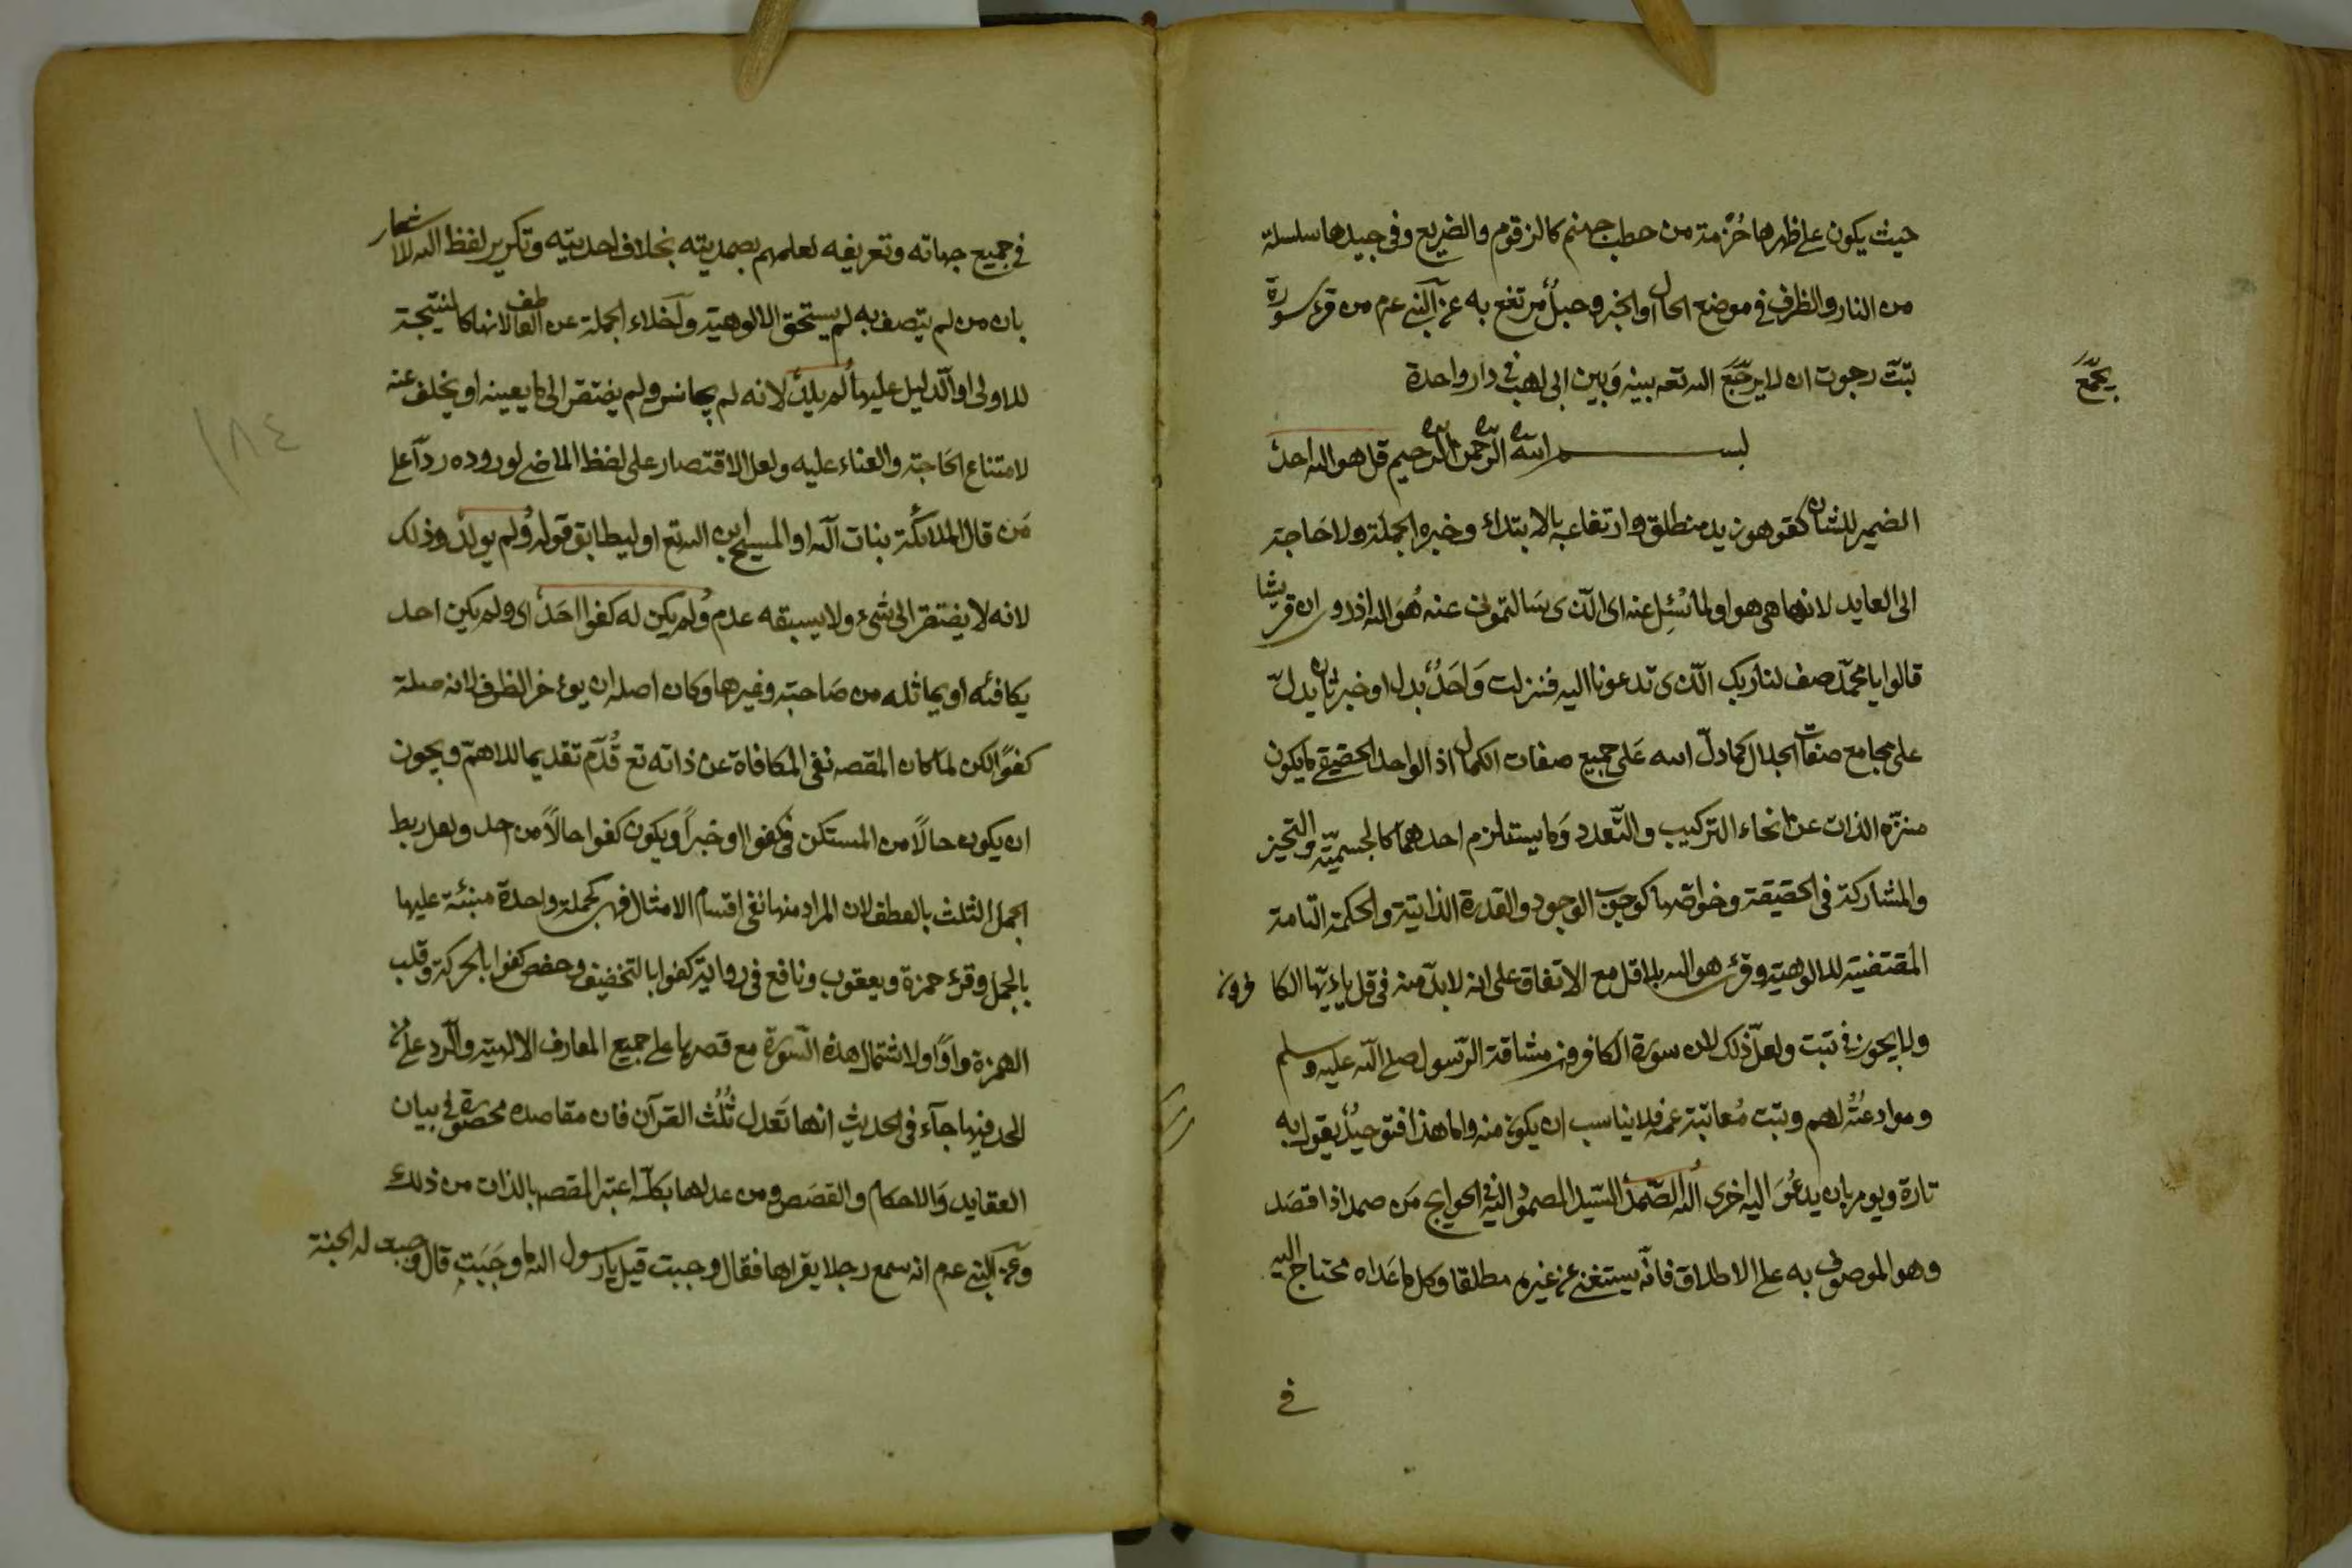 حيث يكون على ظهرها حُزمة من حطب جهنم كالزقوم والضريع وفي جيدها سلسلة
من النار والظرف في موضع الحال او الخبر وحبلٌ مرتفع به عن النبي عم من قرء سورة
تبّت رجوت ان لا يرجّبَع الله تعه بينه وَبين ابى لهب في دار واحدة
يجمّعَ
بسم الله الرّحمن الرّحيم قل هو الله احدٌ
الضمير للشان كقو هو زيد منطلق وارتفاعه بالابتداء وخبره الجملة ولا حَاجة
الى العايد لانها هى هو او لما سُئِل عنه اى الّذى سَالتمونى عنه هُوَ الله اذ روى ان قريشا
قالوا يا محمّد صف لنا ربك الّذى تدعونا اليه فنزلت وَاحَدٌ بدل او خبر ثان يدلّ
على مجامع صفات الجلال كما دلّ الله عَلى جميع صفات الكمال اذ الواحد الحقيقي ما يكون
منزّه الذات عن انحاء التركيب والتّعدد وَما يستلزم احدهما كالجسميّة والتحيز
والمشاركة في الحقيقة وخواصّها كوجوب الوجود والقدرة الذاتية والحكمة التامة
المقتضية للالوهية وقرئ هو الله بلا قل مع الاتفاق على انه لابدّ منه في قل ياءيّها الكافرون
ولا يجوز في تبت ولعلّ ذلك لان سورة الكافرون مشاقة الرّسول صلى الله عليه وسلم
وموادعتُهُ لهم وتبت مُعاتبة عمه فلا يناسب ان يكون منه واما هذا فتوحيدٌ يقول به
تارة ويومر بان يدعُوَ اليه اخرى الله الصّمدُ السّيد المصمود اليه في الحوايج مَن صمد اذا قصَد
وهو الموصوف به على الاطلاق فانّه يستغنى عن غيره مطلقا وكل ما عَداه محتاج اليه
في
في جميع جهاته وتعريفه لعلمهم بصمديته بخلاف احديته وتكرير لفظ الله للاشعار
بان من لم يتصف به لم يستحق الالوهية وآخلاء الجملة عن العاطف لانها كالنتيجة
للاولى او الّدليل عليها لم يلدْ لانه لم يجانس ولم يفتقر الى ما يعينه او يخلف عنه
لامتناع الحَاجة والفناء عليه ولعل الاقتصار على لفظ الماضى لوروده رداً على
مَن قال الملائكة بنات الله او المسيح ابن الله تع او ليطابق قوله وَلم يولدْ وذلك
لانه لا يفتقر الى شىء ولا يسبقه عدم وَلم يكن له كفوا احَدٌ اى ولم يكن احد
يكافئه او يماثله من صَاحبة وغيرها وكان اصله ان يوءخر الظرف لانه صلة
كفوًا لكن لما كان المقصه نفى المكافاة عن ذاته تع قُدّم تقديما للاهمّ ويجوز
ان يكون حالًا من المستكن في كفوا او خبراً ويكون كفوا حالًا من احد ولعل ربط
الجمل الثلث بالعطف لان المراد منها نفى اقسام الامثال فهى كجملة واحدة مبنئة عليها
بالجمل وقرء حمزة ويعقوب ونافع في رواية كفوا بالتخفيف وحفص كفوا بالحركة وقلب
الهمزة واوًا ولاشتمال هذه السّورة مع قصرها على جميع المعارف الالهية والّرد على من
الحد فيها جآء في الحديث انها تعَدل ثُلُث القرآن فان مقاصده محصورة في بيان
العقايد وَالاحكام والقصَص ومن عدلها بكلّه اعتبر المقصه بالذات من ذلك
وعن النبى عم انه سمع رجلا يقراها فقال وجبت قيل يا رسول الله ما وجَبَت قال وجبت له الجنة
١٨٤